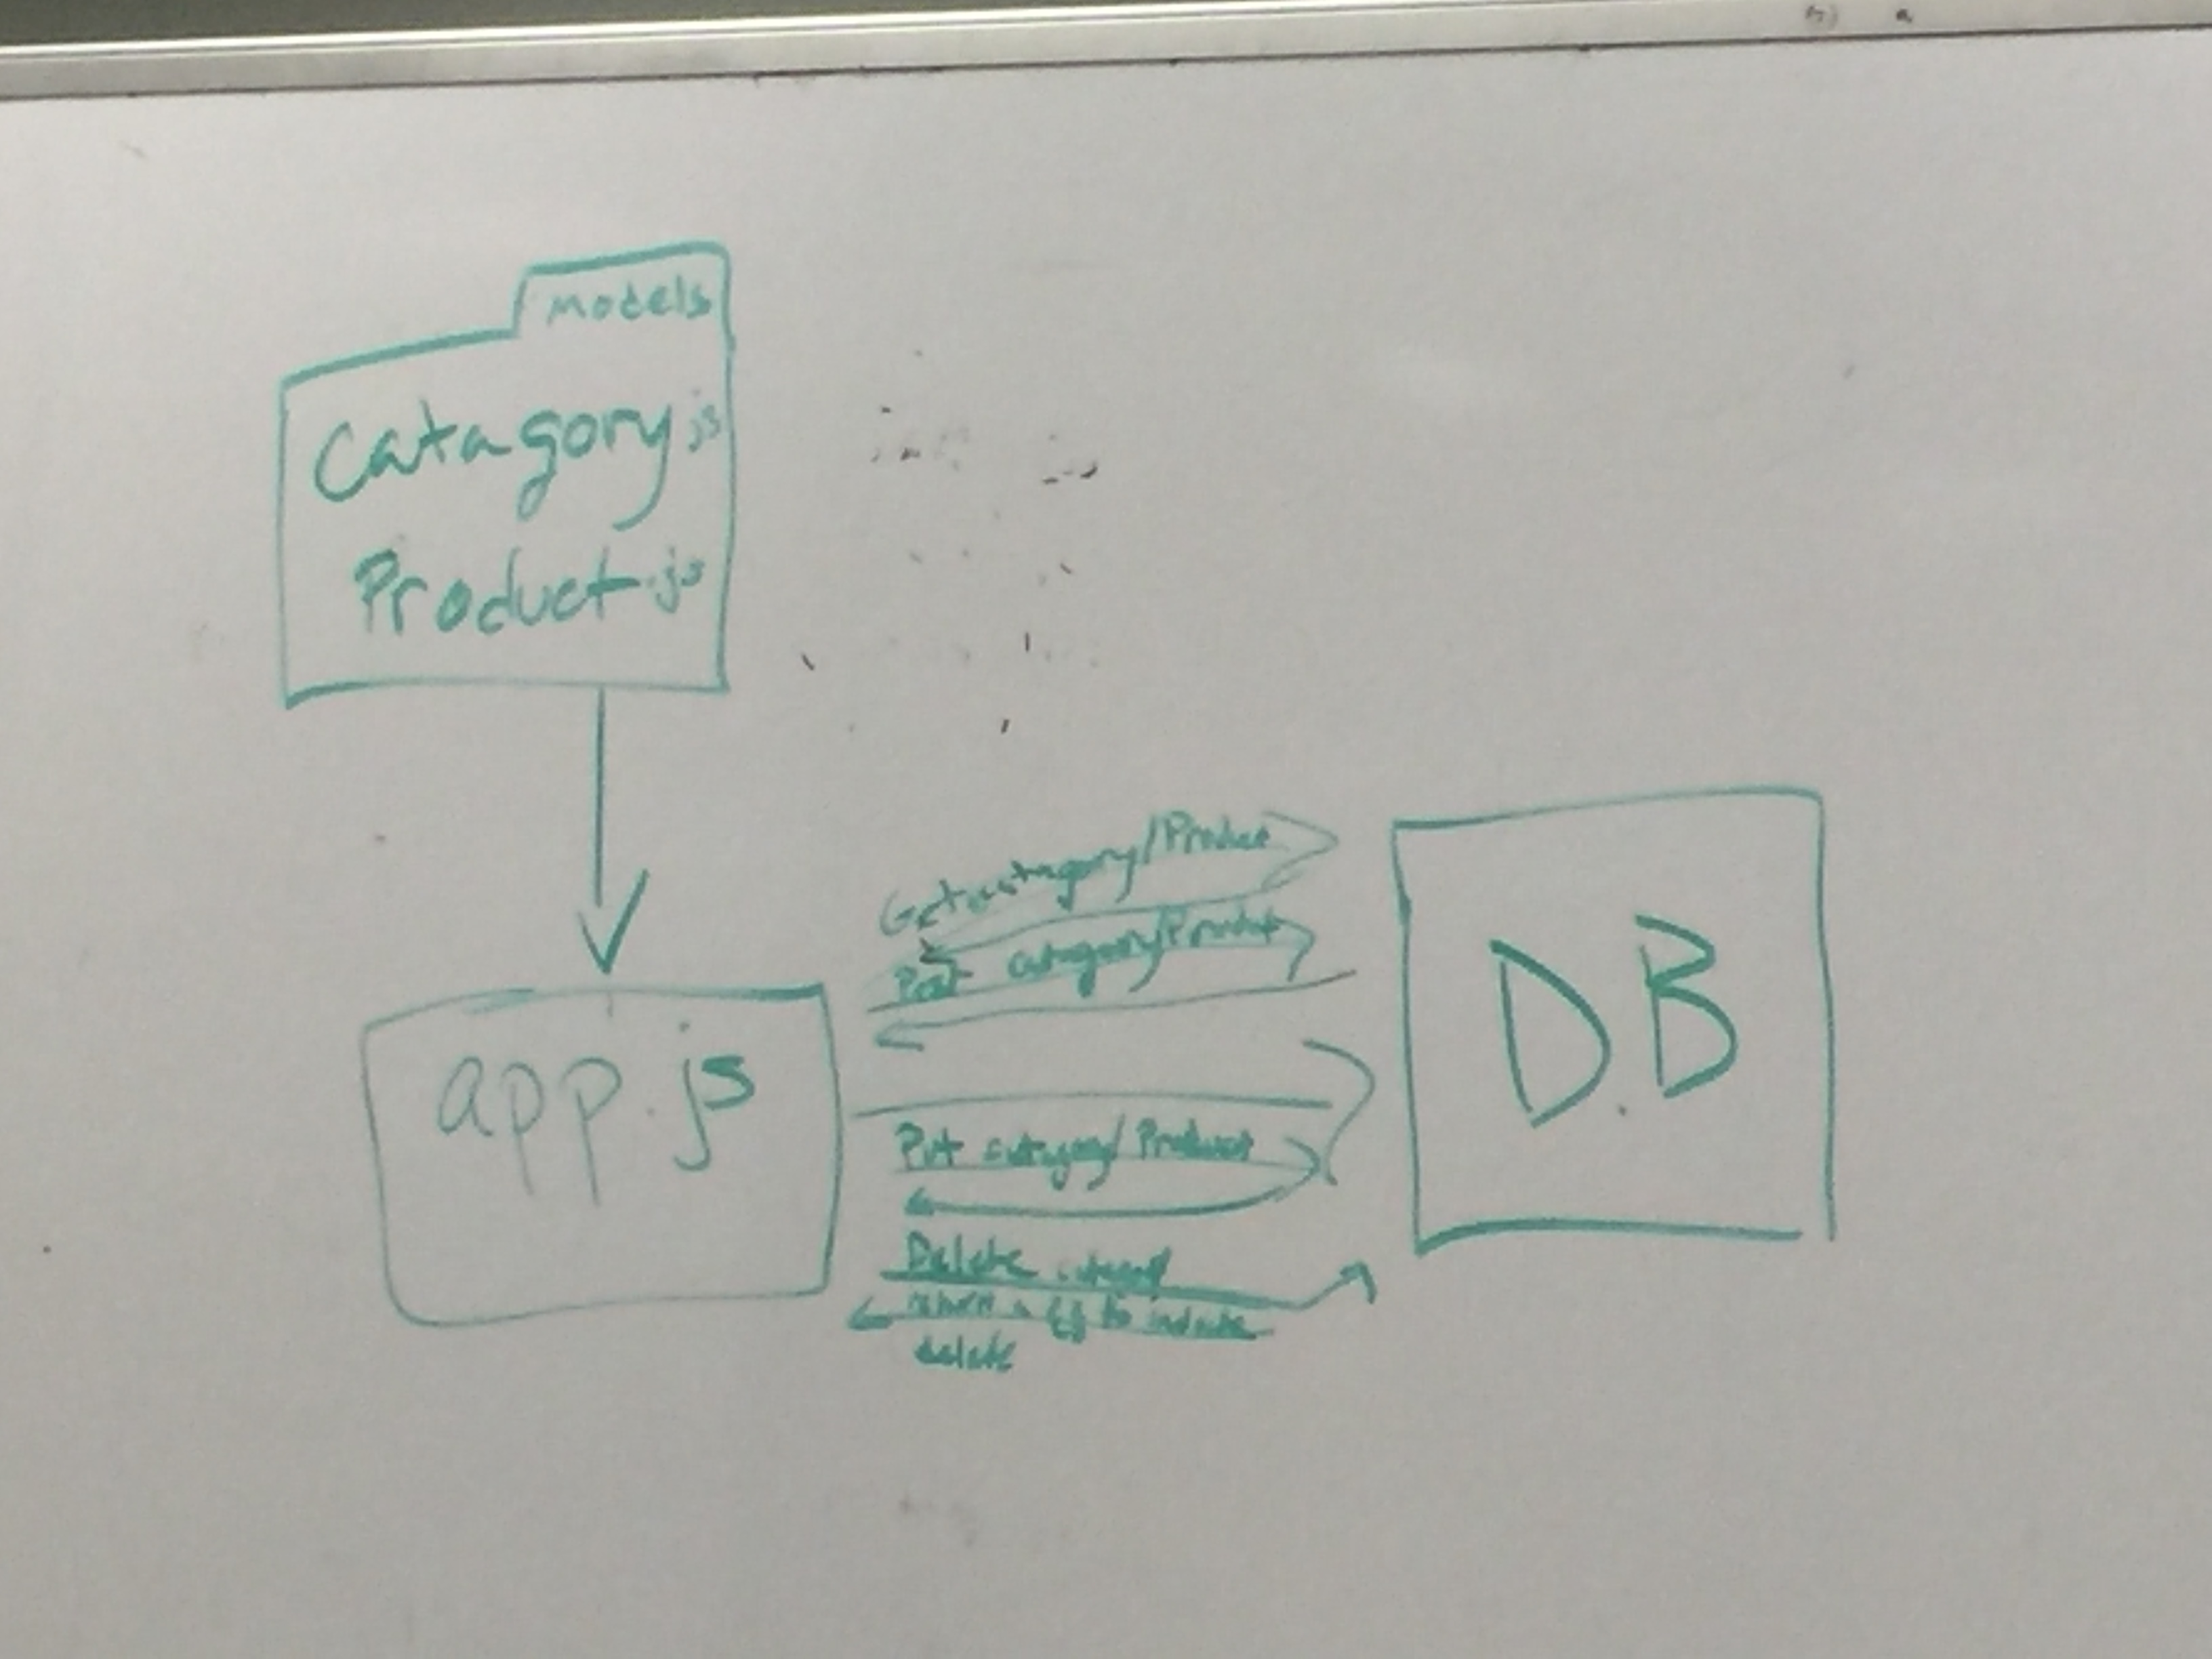 models
Catagory.js
Product.js
app.js
Get catagory/Product
Post catagory/Product
Put category/Product
Delete category
return a {} to indicate
delete
DB